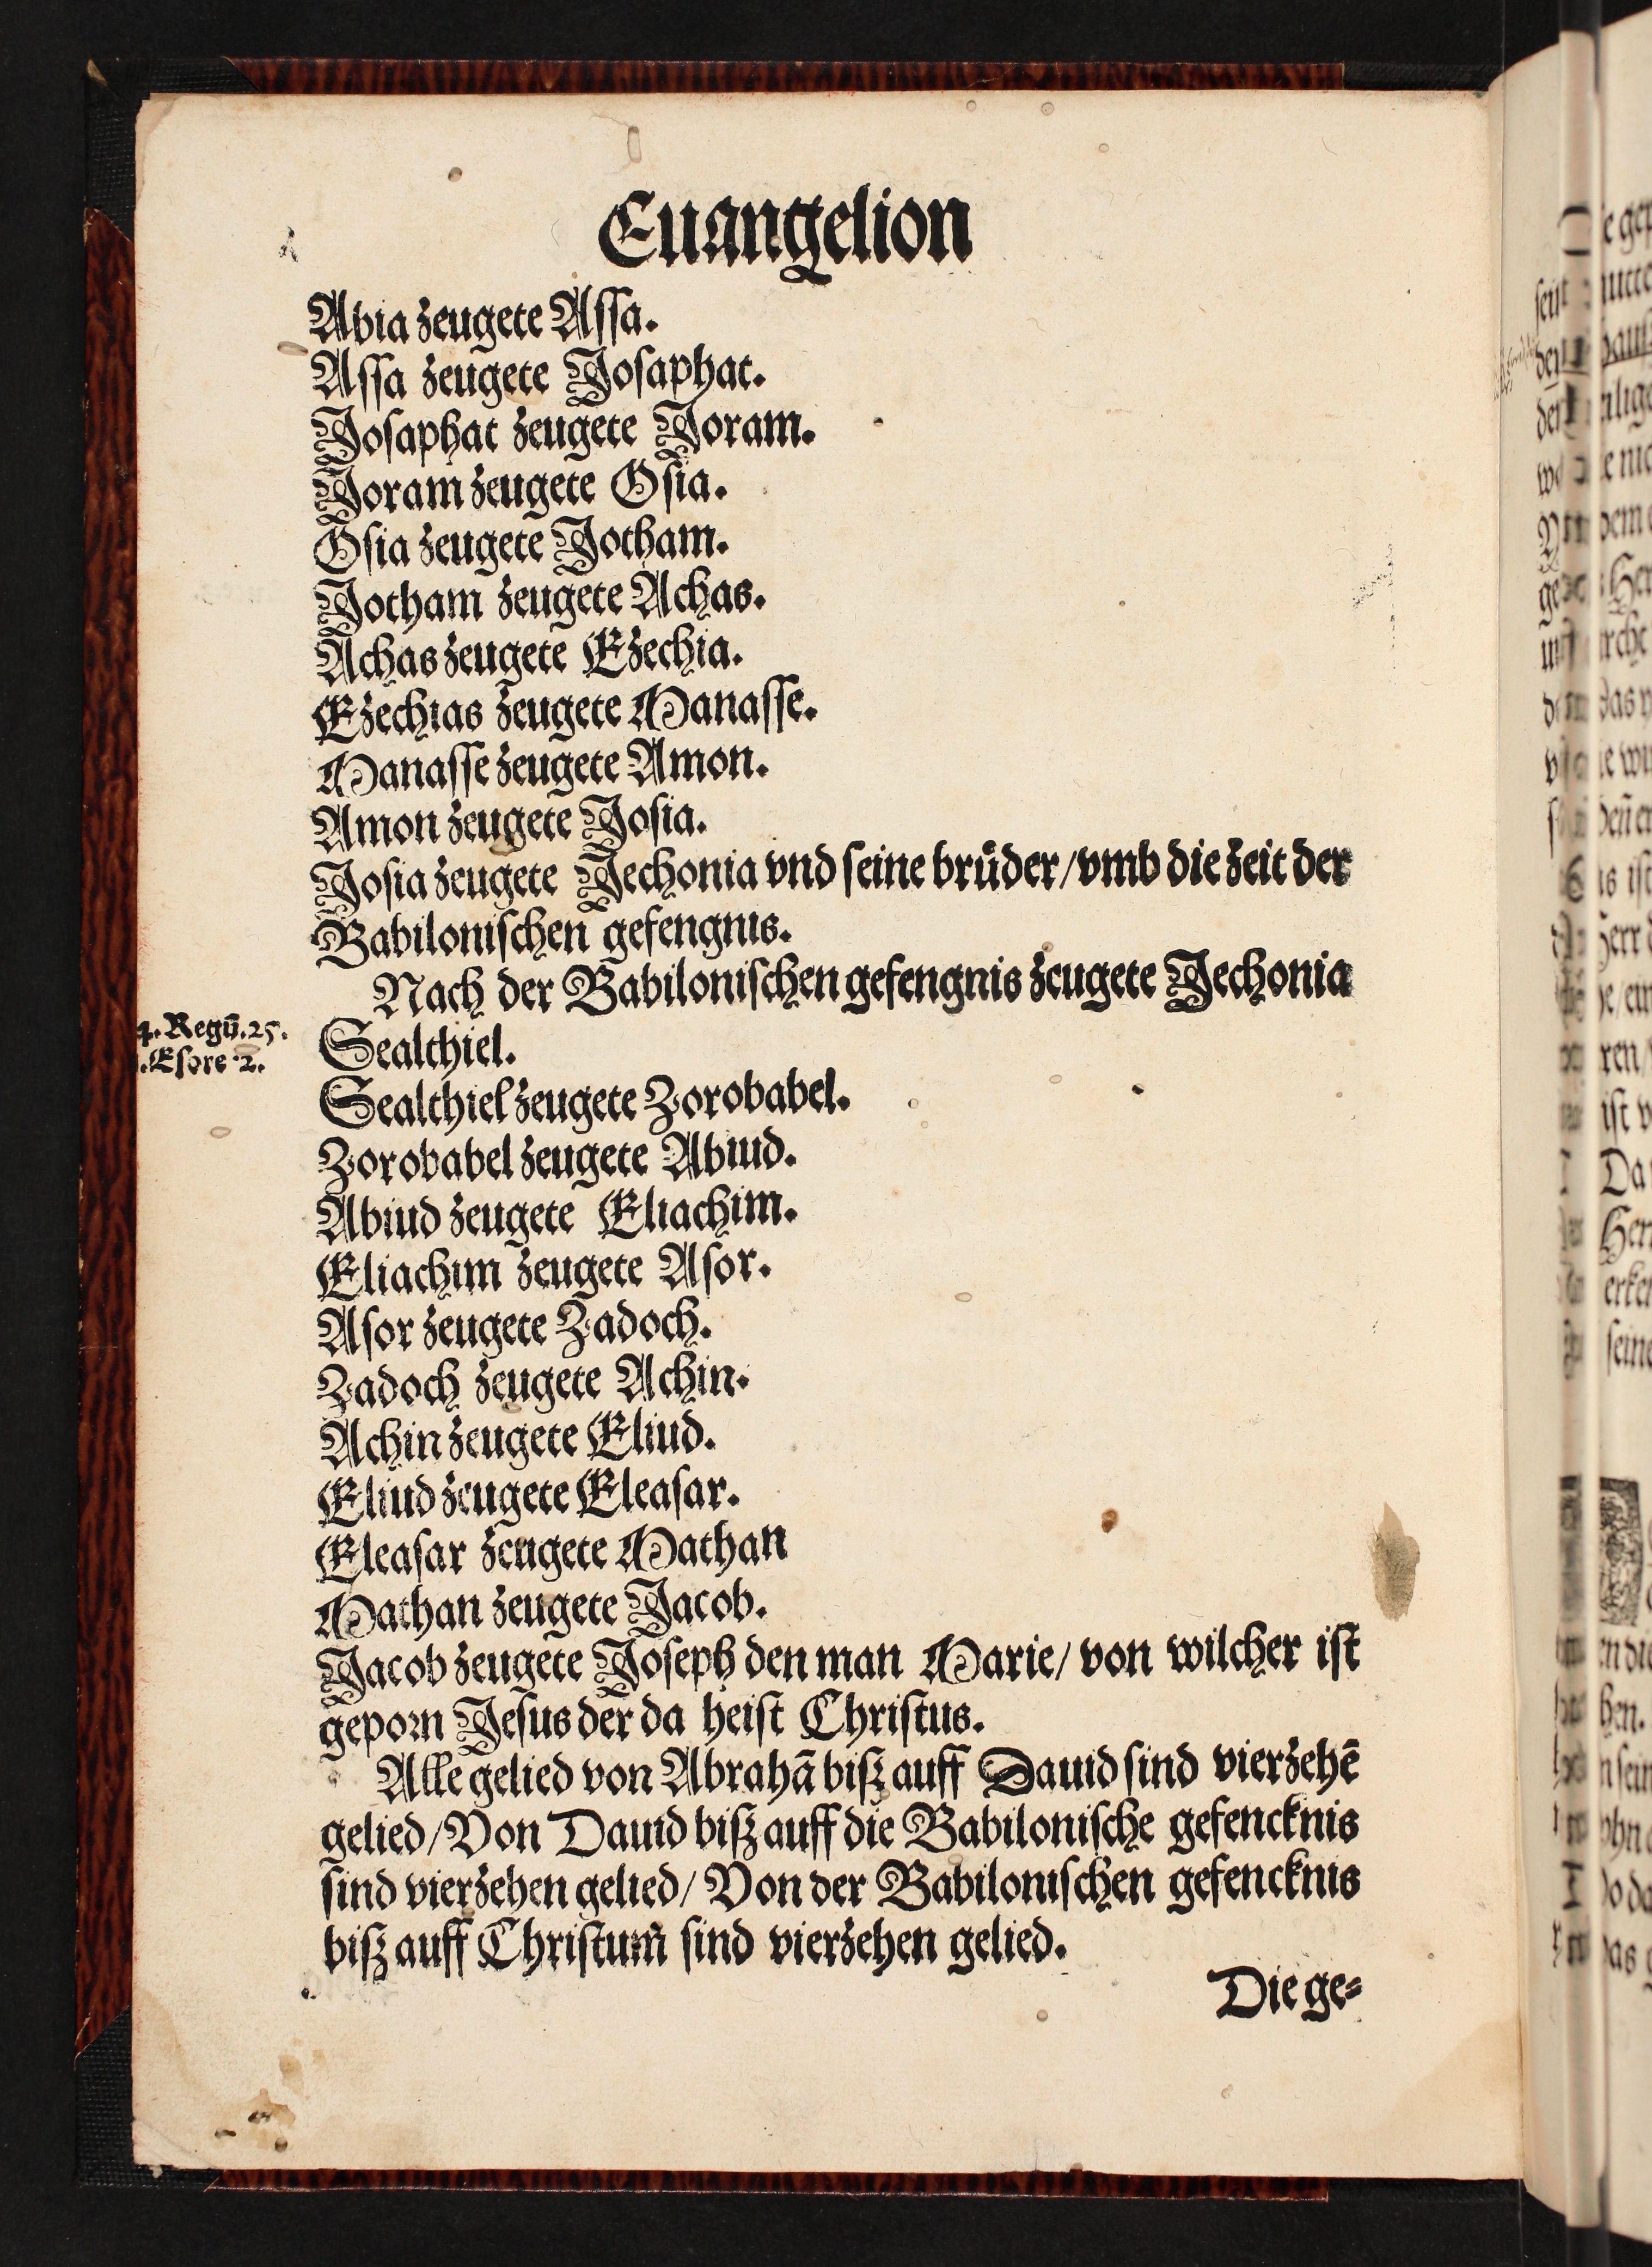 Euangelion
Abia zeugete Assa.
Assa zeugete Josaphat.
Josaphat zeugete Joram.
Joram zeugete Osia.
Osia zeugete Jotham.
Jotham zeugete Achas.
Achas zeugete Ezechia.
Ezechias zeugete Manasse.
Manasse zeugete Amon.
Amon zeugete Josia.
Josia zeugete Jechonia vnd seine bruͤder/vmb die zeit der
Babilonischen gefengnis.
Nach der Babilonischen gefengnis zeugete Jechonia
4. Regū. 25.
.Esdre 2.
Sealthiel.
Sealthiel zeugete Zorobabel.
Zorobabel zeugete Abiud.
Abiud zeugete Eliachim.
Eliachim zeugete Asor.
Asor zeugete Zadoch.
Zadoch zeugete Achin.
Achin zeugete Eliud.
Eliud zeugete Eleasar.
Eleasar zeugete Mathan
Mathan zeugete Jacob.
Jacob zeugete Joseph den man Marie/ von wilcher ist
geporn Jesus der da heist Christus.
Alle gelied von Abrahā biß auff Dauid sind vierzehē
gelied/Von Dauid biß auff die Babilonische gefencknis
sind vierzehen gelied/ Von der Babilonischen gefencknis
biß auff Christum sind vierzehen gelied.
Die ge⸗